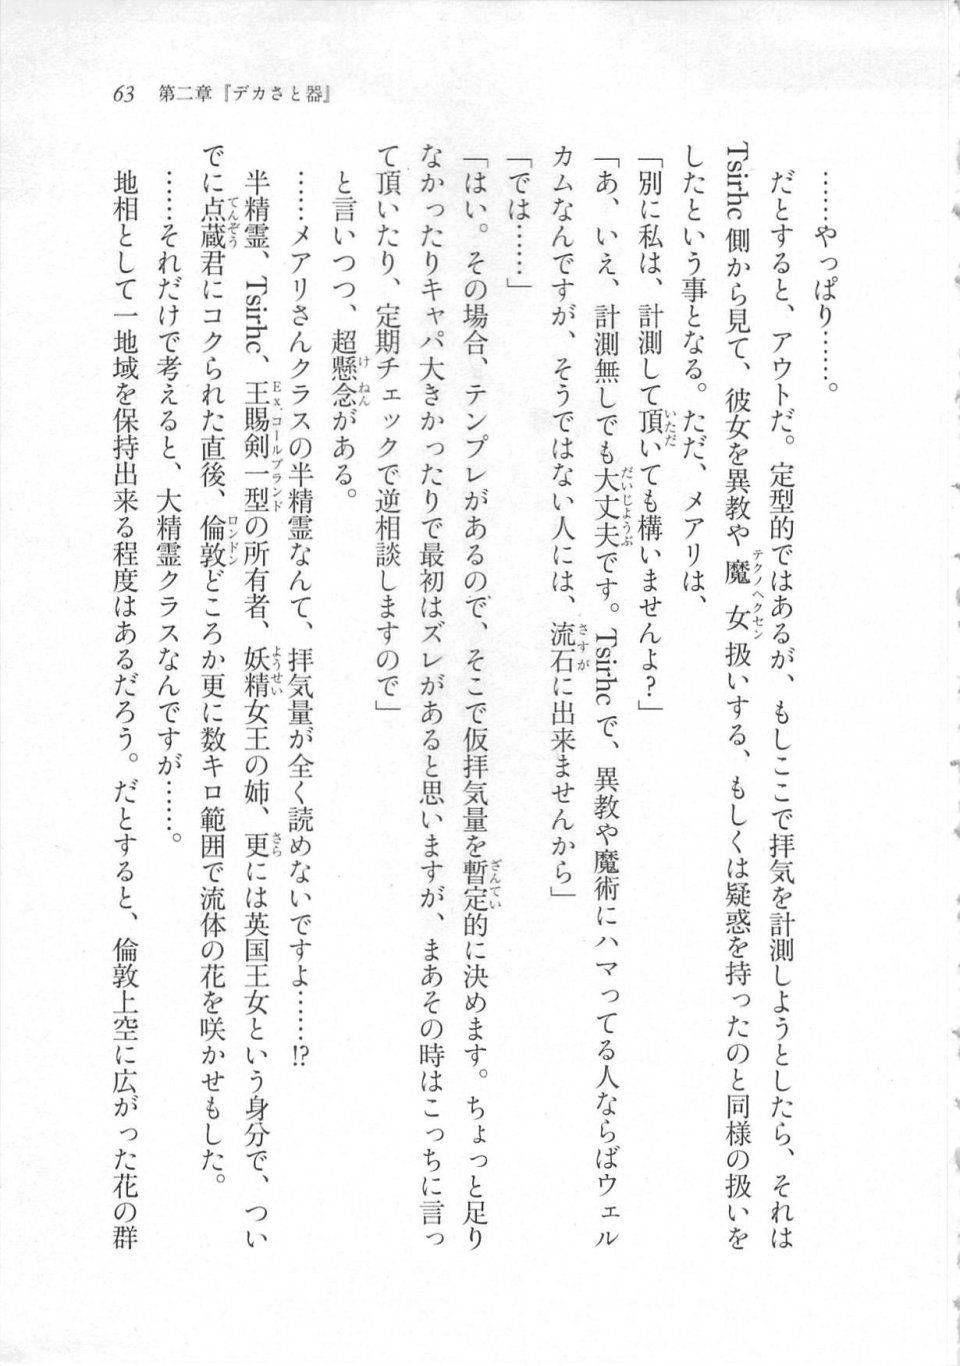 63 第二章『デカさと器』
……やっぱり……。
だとすると、アウトだ。定型的ではあるが、もしここで拝気を計測しようとしたら、それは
Tsirhc 側から見て、彼女を異教や魔女扱いする、もしくは疑惑を持ったのと同様の扱いを
したという事となる。ただ、メアリは、
「別に私は、計測して頂いても構いませんよ？」
「あ、いえ、計測無しでも大丈夫です。Tsirhc で、異教や魔術にハマってる人ならばウェル
カムなんですが、そうではない人には、流石に出来ませんから」
「では……」
「はい。その場合、テンプレがあるので、そこで仮拝気量を暫定的に決めます。ちょっと足り
なかったりキャパ大きかったりで最初はズレがあると思いますが、まあその時はこっちに言っ
て頂いたり、定期チェックで逆相談しますので」
と言いつつ、超懸念がある。
……メアリさんクラスの半精霊なんて、拝気量が全く読めないですよ……!?
半精霊、Tsirhc、王賜剣一型の所有者、妖精女王の姉、更には英国王女という身分で、つい
でに点蔵君にコクられた直後、倫敦どころか更に数キロ範囲で流体の花を咲かせもした。
……それだけで考えると、大精霊クラスなんですが……。
地相として一地域を保持出来る程度はあるだろう。だとすると、倫敦上空に広がった花の群